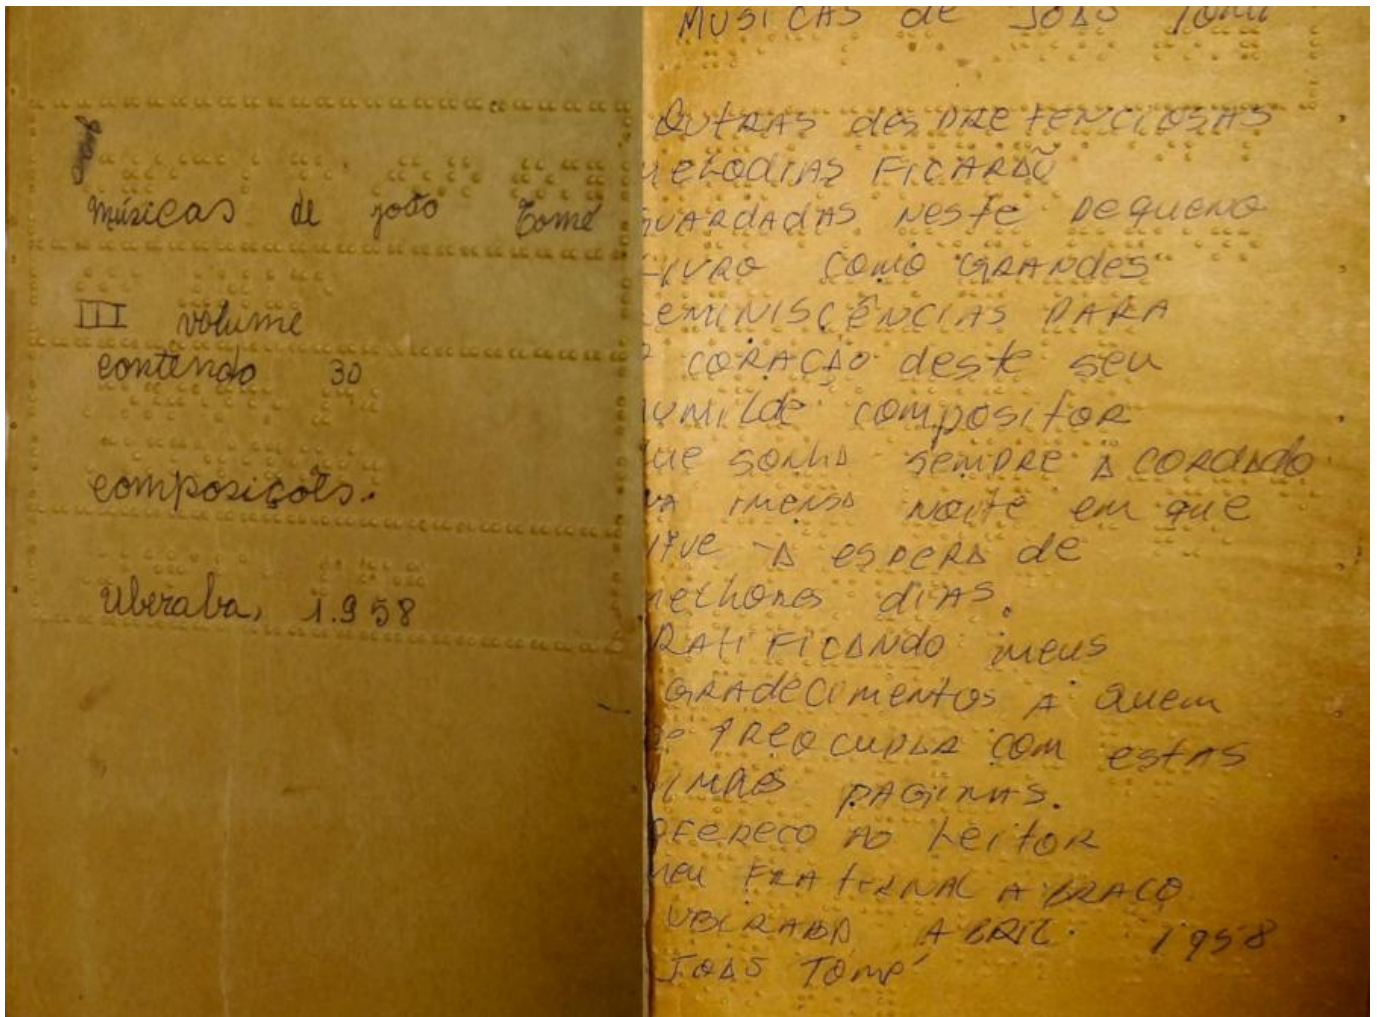 Músicas de joão Tomé
III volume
contendo 30
composições.
Uberaba, 1.958
MUSICAS de JOÃO TOMÉ
OUTRAS desPRETENCIOSAS
MELODIAS FICARÃO
GUARDADAS NESTE PEQUENO
LIVRO COMO GRANDES
REMINISCÊNCIAS PARA
CORAÇÃO deste seu
HUMILde COMPOSITOR
QUE SONHA SEMPRE ACORDADO
NA IMENSA NOITE em que
VIVE A ESPERA de
MELHORES DIAS.
RATIFICANDO meus
AGRADECIMENTOS A Quem
se PREOCUPAR COM ESTAS
PAGINAS.
OFEREÇO AO LEITOR
MEU FRATERNAL ABRAÇO
UBERABA ABRIL. 1958
JOÃO TOMÉ